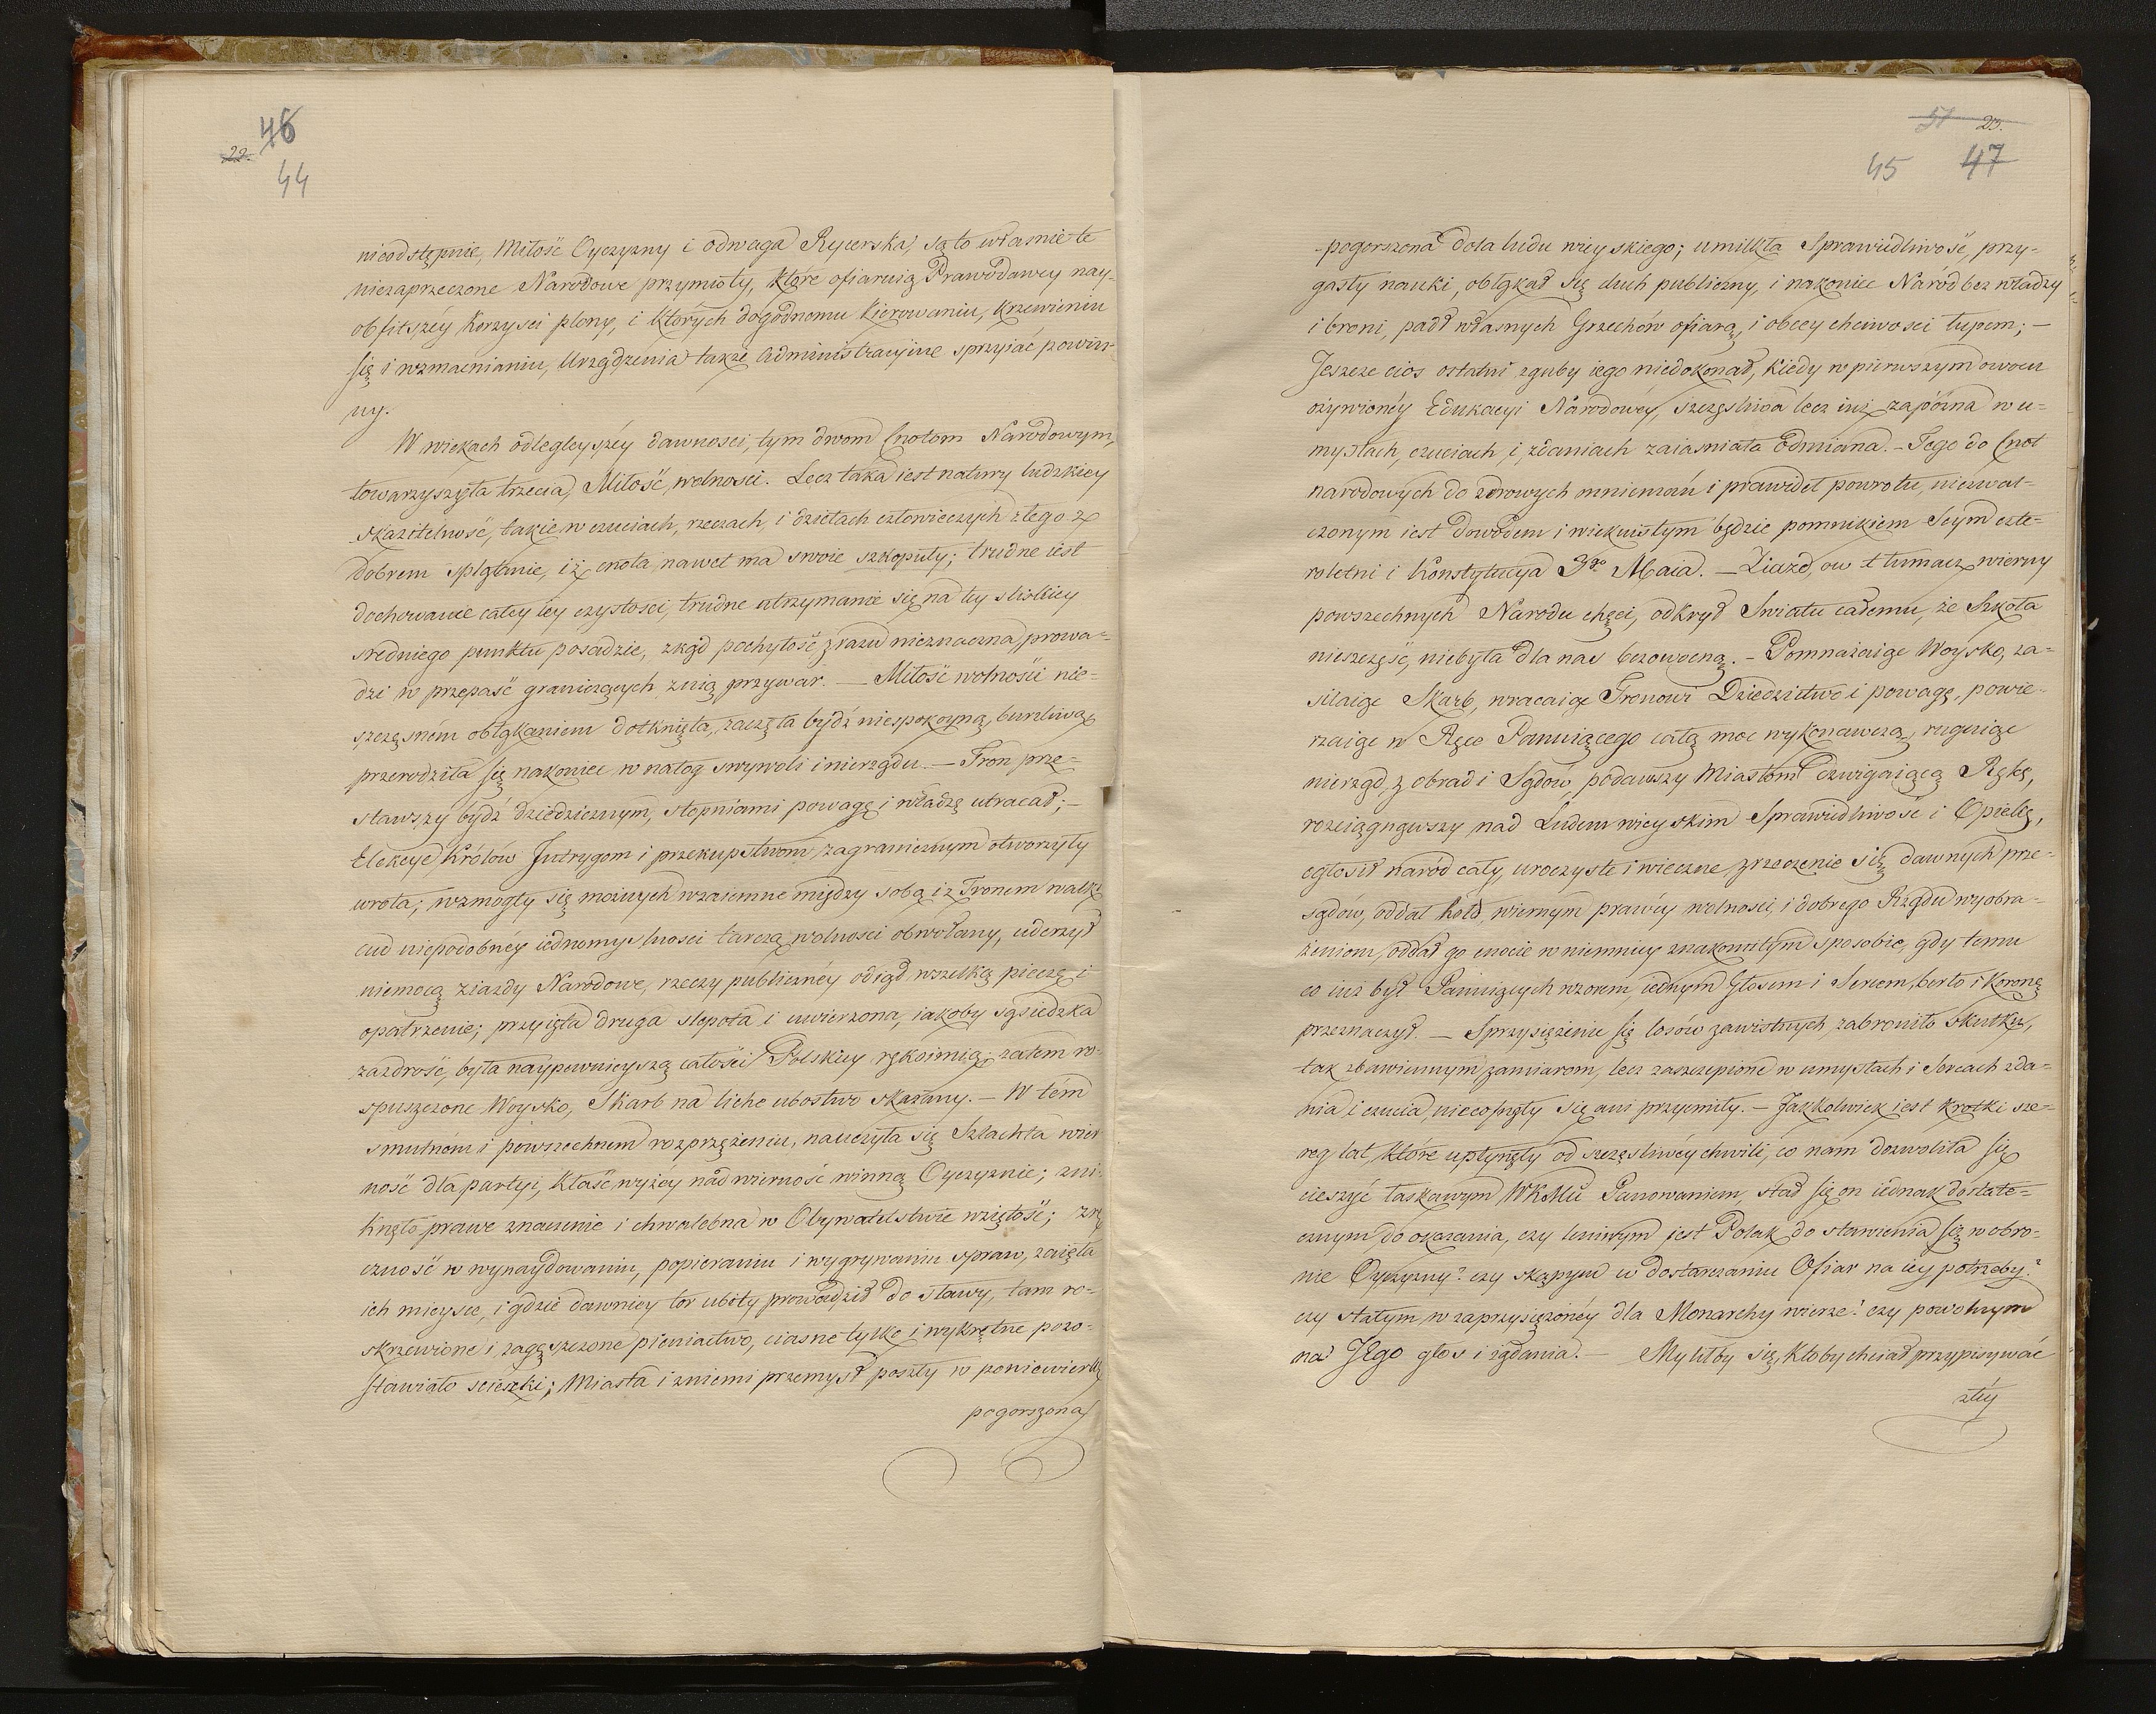 46
22.
44
nieodstępnie, Miłość Oyczyzny i odwaga Rycerska, są to własnie te
niezaprzeczone Narodowe przymioty, które ofiaruią Prawodawcy nay-
obfitszéy korzysci plony, i których dogodnemu kierowaniu, krzewieniu
się i wzmacnianiu, Urządzenia także Administracyine sprzyiać powin-
ny.
W wiekach odlegleyszéy dawnosci, tym dwom Cnotom Narodowym,
towarzyszyła trzecia, Miłość, wolnosci. Lecz taka iest natury ludzkiey
skazitelność, takie w czuciach, rzeczach, i dziełach człowieczych złego z
dobrem splątanie, iż cnota nawet ma swoie szkopuły; trudne iest
dochowanie całey iey czystosci, trudne utrzymanie się na tey slizkiey
sredniego punktu posadzie, zkąd pochyłość z razu nieznaczna, prowa-
dzi w przepaść graniczących znią przywar. — Miłość wolności nie-
szczęsném obłąkaniem dotknięta, zaczęła bydź niespokoyną, burzliwą,
przerodziła się nakoniec w nałog swywoli i nierządu. — Tron prze-
stawszy bydź dziedzicznym, stopniami powagę i władzę utracał; —
Elekcye Królów Intrygom i przekupstwom zagranicznym otworzyły
wrota; wzmogły się możnych wzaiemne między sobą i z Tronem walki
cud niepodobnéy iednomyslnosci tarczą wolnosci obwołany, uderzył
niemocą ziazdy Narodowe, rzeczy publicznéy odiął wszelką pieczę i
opatrzenie; przyięta druga slepota i uwierzona, iakoby sąsiedzka
zazdrość, była naypewnieyszą całości Polskiey rękoimią; zatem ro-
spuszczone Woysko, Skarb na liche ubostwo skazany. — W tém
smutnem i powszechnem rozprzężeniu, nauczyła się Szlachta wier
ność dla partyi, kłaść wyżéy nad wierność winną Oyczyznie; zni-
knęło prawe znaczenie i chwalebna w Obywatelstwie wziętość; zrę
czność w wynaydowaniu, popieraniu i wygrywaniu spraw, zaięła
ich mieysce, i gdzie dawniey tor ubity prowadził do sławy, tam ro-
skrzewione i zagęszczone pieniactwo, ciasne tylko i wykrętne pozo-
stawiało scieszki; Miasta i zniemi przemysł poszły w poniewierkę
pogorszona
51 23.
45 47
pogorszona dola ludu wieyskiego; umilkła Sprawiedliwość, przy-
gasły nauki, obłąkał się duch publiczny, i nakoniec Naród bez władzy
i broni, padł własnych Grzechów ofiarą, i obcey chciwosci łupem; —
Jeszcze cios ostatni zguby iego niedokonał, kiedy w pierwszym owocu
ożywionéy Edukacyi Narodowéy, szczęsliwa lecz iuż zapóżna w u-
mysłach, czuciach, i zdaniach zaiasniała Odmiana. — Tego do Cnot
narodowych do zdrowych mniemań i prawideł powrotu, niezwal-
czonym iest dowodem i wiekuistym będzie pomnikiem Seym czte-
roletni i Konstytucya 3go Maia. — Ziazd, ow tłumacz wierny
powszechnych Narodu chęci, odkrył Swiatu całemu, że Szkoła
nieszczęść, niebyła dla nas bezowocną. — Pomnażaiąc Woysko, za-
silaiąc Skarb, wracaiąc Tronowi Dziedzictwo i powagę, powie-
rzaiąc w Ręce Panuiącego całą moc wykonawczą, ruguiąc
nierząd z obrad i Sądów, podawszy Miastom dzwigaiącą Rękę,
rozciągnąwszy nad Ludem wieyskim Sprawiedliwośc i Opiekę,
ogłosił naród cały, uroczyste i wieczne zrzeczenie się dawnych prze-
sądów, oddał hołd, wiernym prawéy wolnosci, i dobrego Rządu wyobra-
żeniom, oddał go cnocie w niemniey znakomitym sposobie, gdy temu
co iuż był Panuiących wzorem, iednym Głosem i Sercem, berło i Koronę
przeznaczył. — Sprzysiężenie się losów zawistnych, zabroniło skutku,
tak zbawiennym zamiarom, lecz zaszczepione w umysłach i Sercach zda-
nia i czucia, niecofnęły się ani przycmiły. — Jakkolwiek iest krotki sze-
reg lat, które upłynęły od szczęsliwéy chwili, co nam dozwoliła się
cieszyć łaskawym WKMci Panowaniem, stał się on iednak dostate-
cznym do okazania, czy leniwym jest Polak do stawienia się w obro-
nie Oyczyzny? czy skąpym w dostarzaniu Ofiar na iéy potrzeby?
czy stałym w zaprzysiężonéy dla Monarchy wierze? czy powolnym
na JEgo głos i żądania. — Myliłby się, ktoby chciał przypisywać
złéy